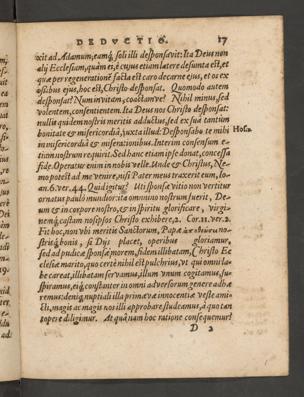 DEDVCTIO. 17
xit ad Adamum, eamq́; soli illi desponsavit: Ita Deus non
alij Ecclesiam, quàm ei, è cujus etiam latere desumta est, et
quæ per regenerationē facta est caro de carne ejus, et os ex
osibus ejus, hoc est, Christo desponsat. Quomodo autem
desponsat? Num invitam, coactamve? Nihil minus, sed
volentem, consentientem. Ita Deus nos Christo desponsat:
nulliù quidem nostris meritis adductus, sed ex suâ tantùm
bonitate & misericordiâ, juxta illud: Desponsabo te mihi Hos.2.
in misericordiâ & miserationibus. Interim consensum e-
tiam nostrum requirit. Sed hanc etiam ipse donat, concessâ
fide. Operatur enim in nobis velle. Vnde & Christus, Ne-
mo potest ad me venire, nisi Pater meus traxerit eum, Io-
an. 6. ver. 44. Quid igitur? Uti sponsæ vitio non vertitur
ornatus paulò mundior: ita omnino nostrum fuerit, De-
um & in corpore nostro, & in spiritu glorificare, virgi-
nemq́; castam nos ipsos Christo exhibere, 2. Cor. 11. ver. 2.
Fit hoc, non ubi meritis Sanctorum, Papæ no-
strisq́; bonis, si Dijs placet, operibus gloriamur,
sed ad pudicæ sponsæ morem, fidem illibatam, (Christo Ec-
clesiæ marito, quo certè nihil est pulchrius, ut qui omni la-
be careat, illibatam servamus, illum unum cogitamus, su-
spiramus, eiq́; constanter in omni adversorum genere adhæ
remus: deniq́; nuptiali illa primævæ innocentiæ veste ami-
cti, magis ac magis nos illi approbare studeamus, à quo tan
topere diligimur. At quânam hoc ratione consequemur?
D 2